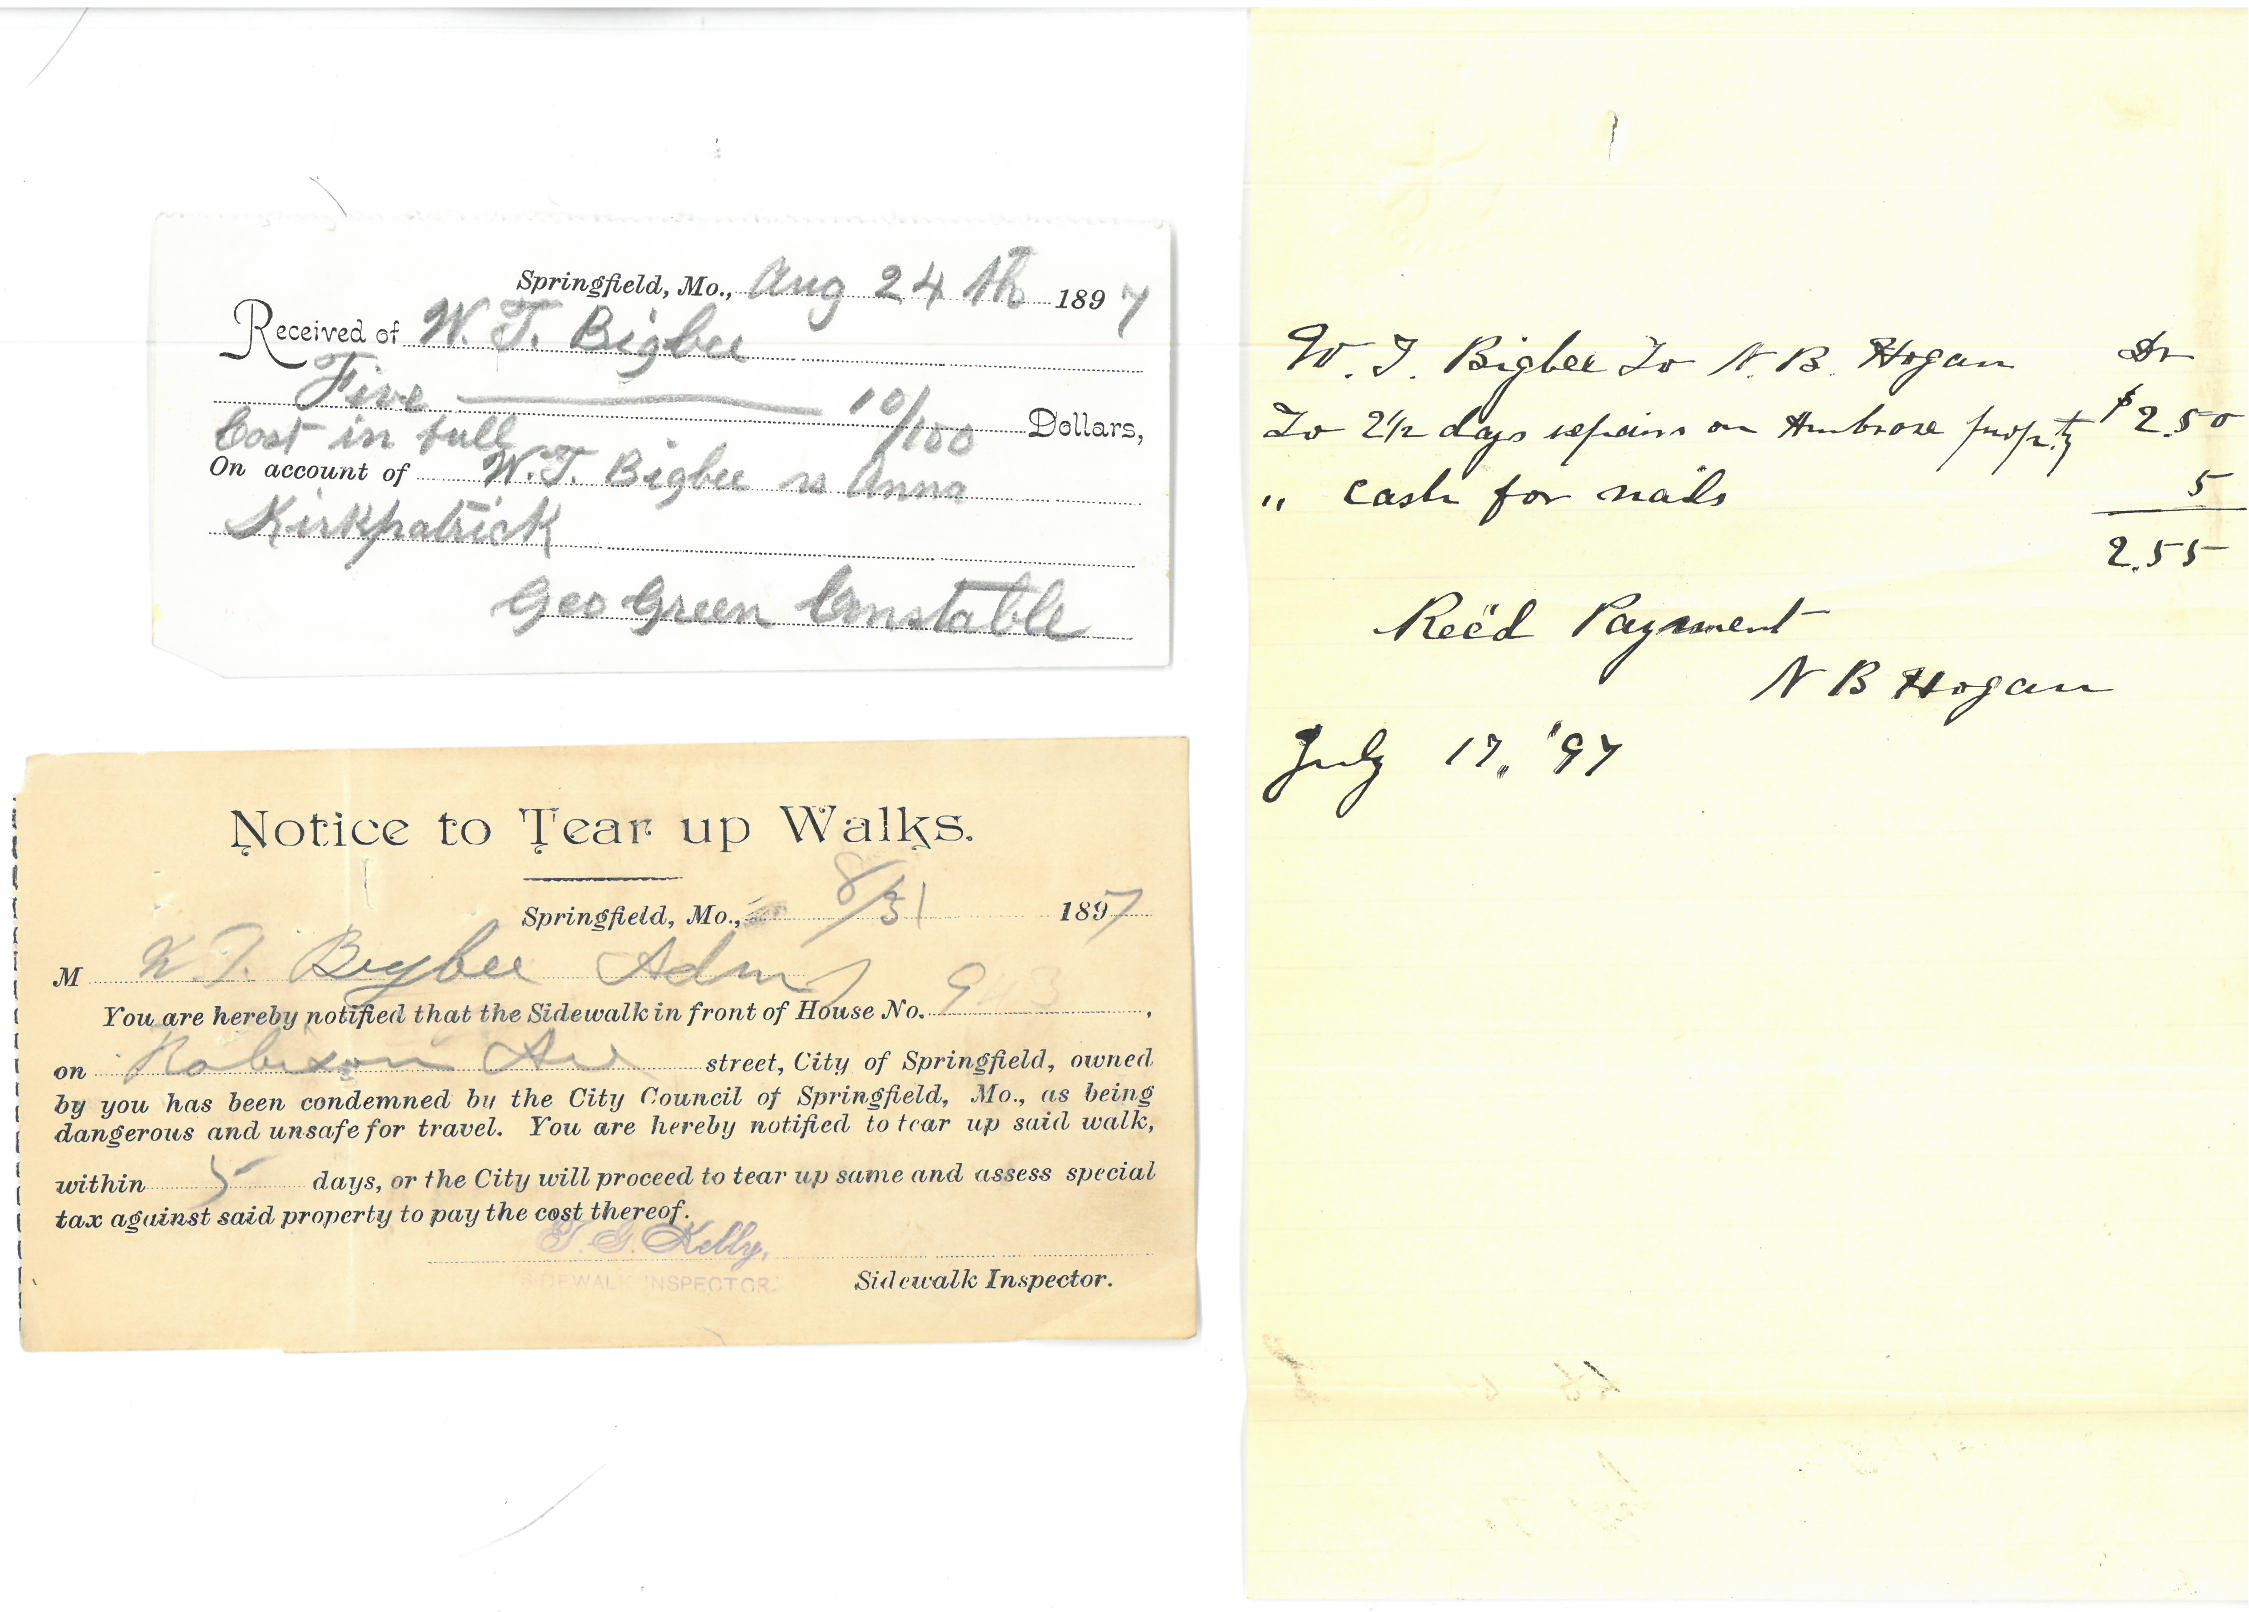 Springfield, Mo., Aug 24th 1897
Received of W. T. Bigbee
Five 10/100 Dollars,
Cost in full
On account of W. T. Bigbee vs Anna
Kirkpatrick
Geo Green Constable
Notice to Tear up Walks.
Springfield, Mo., 8/31 1897
M W. T. Bigbee Admr
You are hereby notified that the Sidewalk in front of House No. 943.
on Robison Ave street, City of Springfield, owned
by you has been condemned by the City Council of Springfield, Mo., as being
dangerous and unsafe for travel. You are hereby notified to tear up said walk,
within 5 days, or the City will proceed to tear up same and assess special
tax against said property to pay the cost thereof.
T. G. Kelly,
SIDEWALK INSPECTOR.
Sidewalk Inspector.
W. T. Bigbee To N. B. Hogan Dr
To 2 1/2 days repairs on Ambrose property $2.50
" cash for nails 5
2.55
Rec'd Payment
N B Hogan
July 17, '97